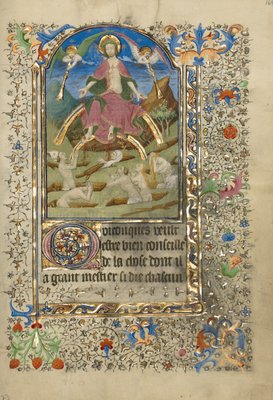 Quiconques veult
estre bien conseille
de la chose dont il
a grant mestier si die chascun